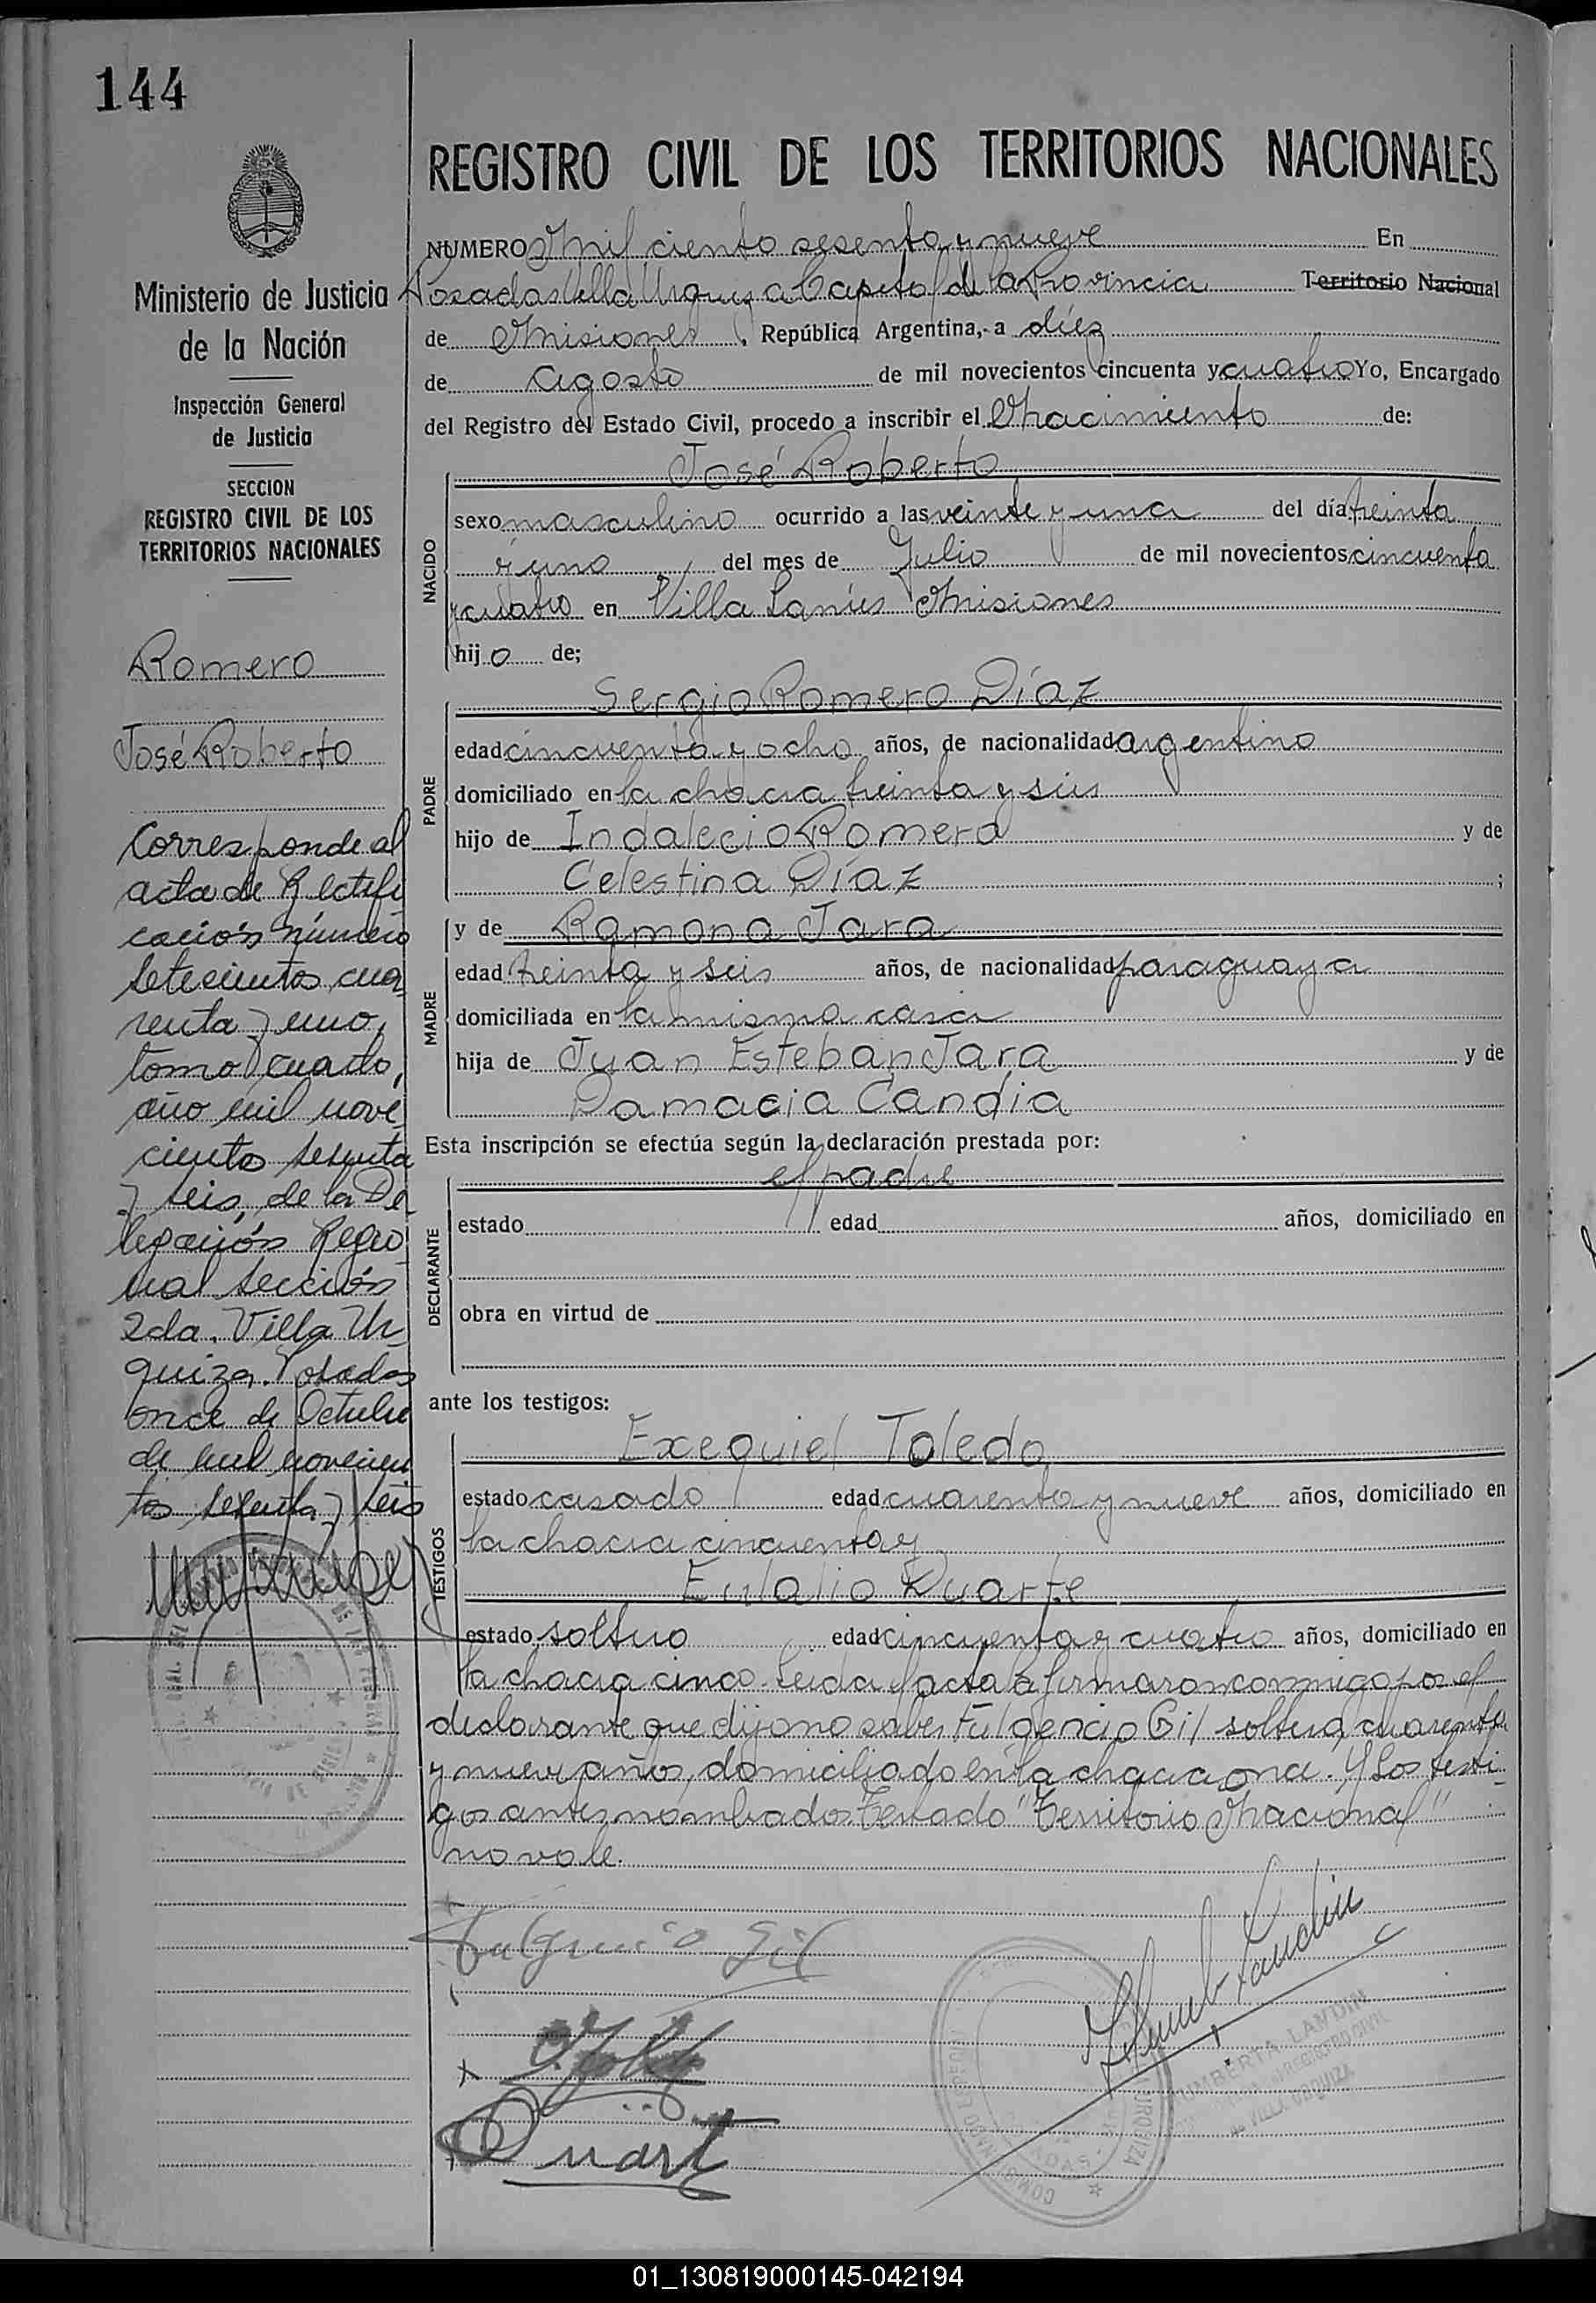 144
Ministerio de Justicia
de la Nación
Inspección General
de Justicia
SECCION
REGISTRO CIVIL DE LOS
TERRITORIOS NACIONALES
Romero
José Roberto
Corresponde al
acta de Rectifi
cación número
setecientos cua
renta y uno,
tomo cuarto,
año mil nove
cientos sesenta
y seis, de la De
legación Regio
nal Sección
2da. Villa Ur
quiza. Posadas
once de Octubre
de mil novecien
tos sesenta y seis
REGISTRO CIVIL DE LOS TERRITORIOS NACIONALES
NUMERO Mil ciento sesenta y nueve En
Posadas Villa Urquiza Capital de la Provincia Territorio Nacional
de Misiones, República Argentina, a diez
de agosto de mil novecientos cincuenta y cuatro Yo, Encargado
del Registro del Estado Civil, procedo a inscribir el Nacimiento de:
José Roberto
NACIDO
sexo masculino ocurrido a las veinte y una del día treinta
y uno del mes de Julio de mil novecientos cincuenta
y cuatro en Villa Lanús Misiones
hijo de;
PADRE
Sergio Romero Díaz
edad cincuenta y ocho años, de nacionalidad argentino
domiciliado en la chacra treinta y seis
hijo de Indalecio Romero y de
Celestina Díaz ;
MADRE
y de Ramona Jara
edad treinta y seis años, de nacionalidad paraguaya
domiciliada en la misma casa
hija de Juan Esteban Jara y de
Damacia Candia
Esta inscripción se efectúa según la declaración prestada por:
DECLARANTE
el padre
estado edad años, domiciliado en
obra en virtud de
ante los testigos:
TESTIGOS
Exequiel Toledo
estado casado edad cuarenta y nueve años, domiciliado en
la chacra cincuenta y
Eulalio Duarte
estado soltero edad cincuenta y cuatro años, domiciliado en
la chacra cinco. Leida el acta la firmaron conmigo por el
declarante que dijo no saber Fulgencio Gil soltero, cuarenta
y nueve años, domiciliado en la chacra once. Y los testi-
gos antes nombrados. Testado "Territorio Nacional"
no vale.
Fulgencio Gil
Duart
HUMBERTA LANDIN
REGISTRO CIVIL
de VILLA URQUIZA
01_130819000145-042194